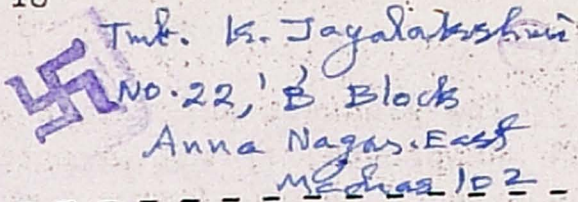 Tmt. K. Jayalakshmi
No. 22, 'B' Block
Anna Nagar. East
Madras 102